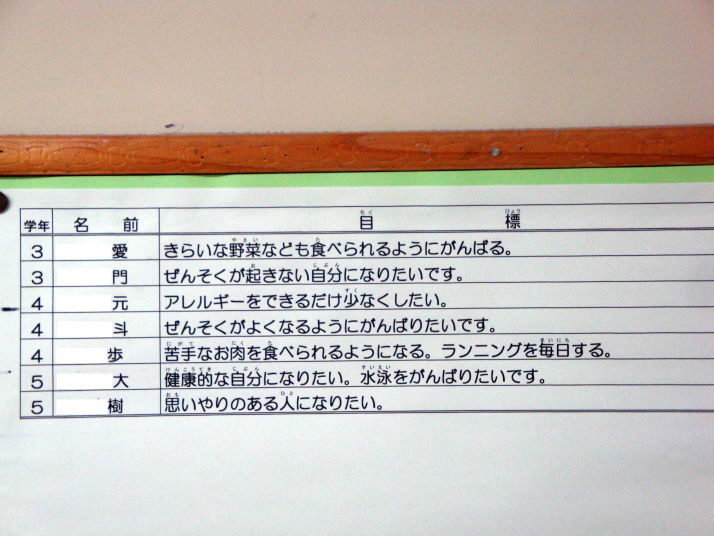 学年 名前 目標
3 愛 きらいな野菜なども食べられるようにがんばる。
3 門 ぜんそくが起きない自分になりたいです。
4 元 アレルギーをできるだけ少なくしたい。
4 斗 ぜんそくがよくなるようにがんばりたいです。
4 歩 苦手なお肉を食べられるようになる。ランニングを毎日する。
5 大 健康的な自分になりたい。水泳をがんばりたいです。
5 樹 思いやりのある人になりたい。